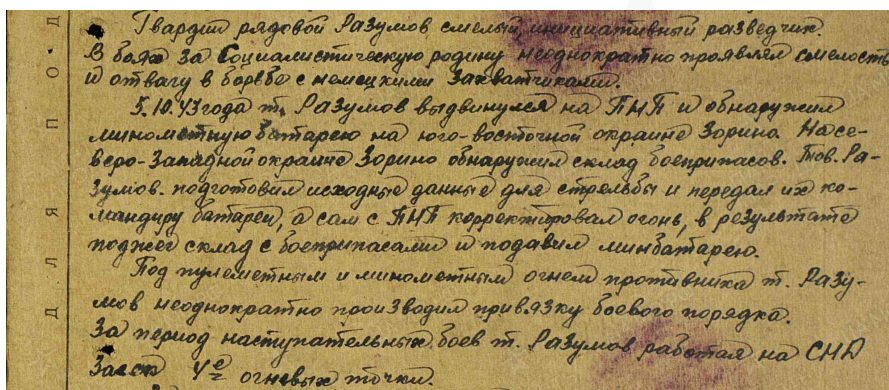 Гвардии рядовой Разумов смелый, инициативный разведчик.
В боях за Социалистическую родину неоднократно проявлял смелость
и отвагу в борьбе с немецкими захватчиками.
5.10.43 года т. Разумов выдвинулся на ПНП и обнаружил
минометную батарею на юго-восточной окраине Зорино. На се-
веро-Западной окраине Зорино обнаружил склад боеприпасов. Тов. Ра-
зумов. подготовил исходные данные для стрельбы и передал их ко-
мандиру батареи, а сам с ПНП корректировал огонь, в результате
поджег склад с боеприпасами и подавил минбатарею.
Под пулеметным и минометным огнем противника т. Разу-
мов неоднократно производил привязку боевого порядка.
За период наступательных боев т. Разумов работал на СНД
Засек 4е огневых точки.
Д Л Я П О Д